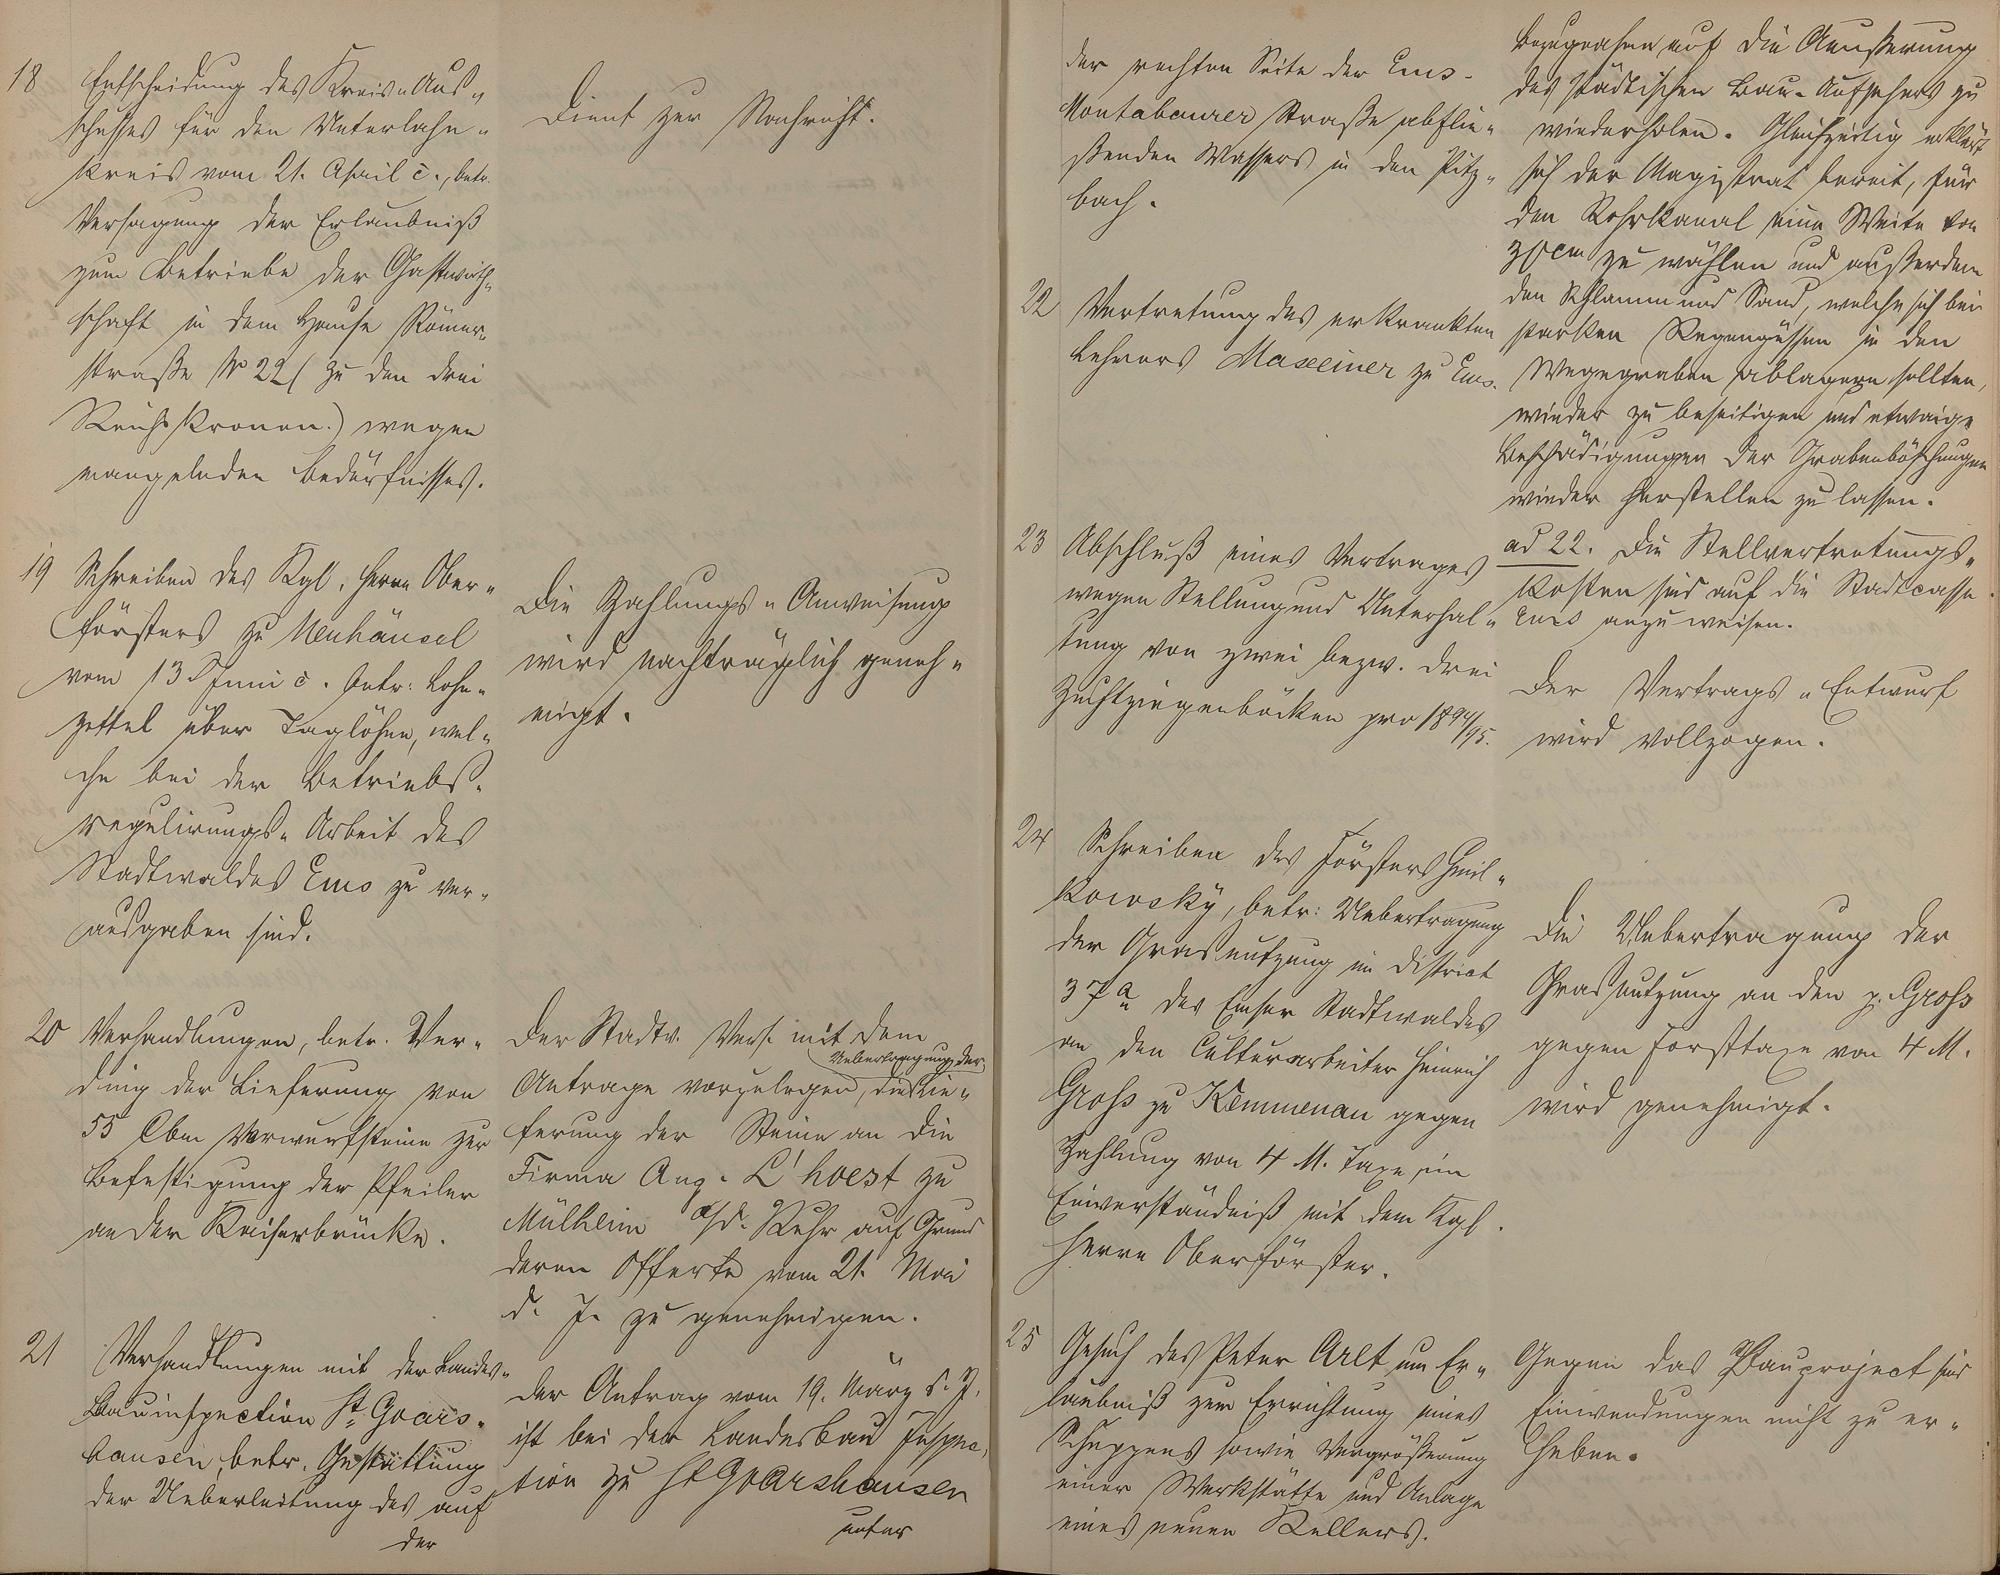 18
Entscheidung des Kreis-Aus-
schusses für den Unterlahn-
kreis vom 21. April c., betr.
Versagung der Erlaubniß
zum Betriebe der Gastwirth-
schaft in dem Hause Römer-
straße No 22 (zu den drei
Reichskronen.) wegen
mangelnden Bedürfnisses.
Dient zur Nachricht.
19
Schreiben des Kgl. Herrn Ober-
försters zu Neuhäusel
vom 13 Juni c. betr: Lohn-
zettel über Taglöhne, wel-
che bei der Betriebs-
regulirungs-Arbeit des
Stadtwaldes Ems zu ver-
ausgaben sind.
Die Zahlungs-Anweisung
wird nachträglich geneh-
migt.
20
Verhandlungen, betr. Ver-
ding der Lieferung von
55 Cbm Vorwurfsteine zur
Befestigung der Pfeiler
an der Kaiserbrücke.
Der Stadtv. Vers. mit dem
Uebertragung der
Antrage vorzulegen, die Lie-
ferung der Steine an die
Firma Aug. L'hoest zu
Mülheim a/d. Ruhr auf Grund
deren Offerte vom 21. Mai
d. J. zu genehmigen.
21
Verhandlungen mit der Landes-
Bauinspection St. Goars-
hausen, betr. Gestattung
der Ueberleitung des auf
der
Der Antrag vom 19. März d. J.
ist bei der Landesbau Inspec-
tion zu St Goarshausen
unter
der rechten Seite der Ems-
Montabaurer Straße abflie-
ßenden Wassers in den Pitz-
bach.
Bezugnahme auf die Aeußerung
des städtischen Bau-Aufsehers zu
wiederholen. Gleichzeitig erklärt
sich der Magistrat bereit, für
den Rohrkanal eine Weite von
30 cm zu wählen und außerdem
den Schlamm und Sand, welche sich bei
starken Regengüssen in den
Wegegraben ablagern sollten,
wieder zu beseitigen und etwaige
Beschädigungen der Grabenböschungen
wieder herstellen zu lassen.
22
Vertretung des erkrankten
Lehrers Maxeiner zu Ems.
ad 22. Die Stellvertretungs-
kosten sind auf die Stadtcasse
Ems anzuweisen.
23
Abschluß eines Vertrages
wegen Stellung und Unterhal-
tung von zwei bezw. drei
Zuchtziegenböcken pro 1894/95.
Der Vertrags-Entwurf
wird vollzogen.
24
Schreiben des Försters
betr: Uebertragung
der Grasnutzung im District
37a des Emser Stadtwaldes
an den Culturarbeiter Heinrich
Groß zu Kemmenau gegen
Zahlung von 4 M. Taxe, im
Einverständniß mit dem Kgl.
Herrn Oberförster.
Die Uebertragung der
Grasnutzung an den p. Groß
gegen Forsttaxe von 4 M.
wird genehmigt.
25
Gesuch des Peter Arlt um Er-
laubniß zum Errichtung eines
Schuppens sowie Vergrößerung
einer Werkstätte und Anlage
eines neuen Kellers.
Gegen das Bauproject sind
Einwendungen nicht zu er-
heben.